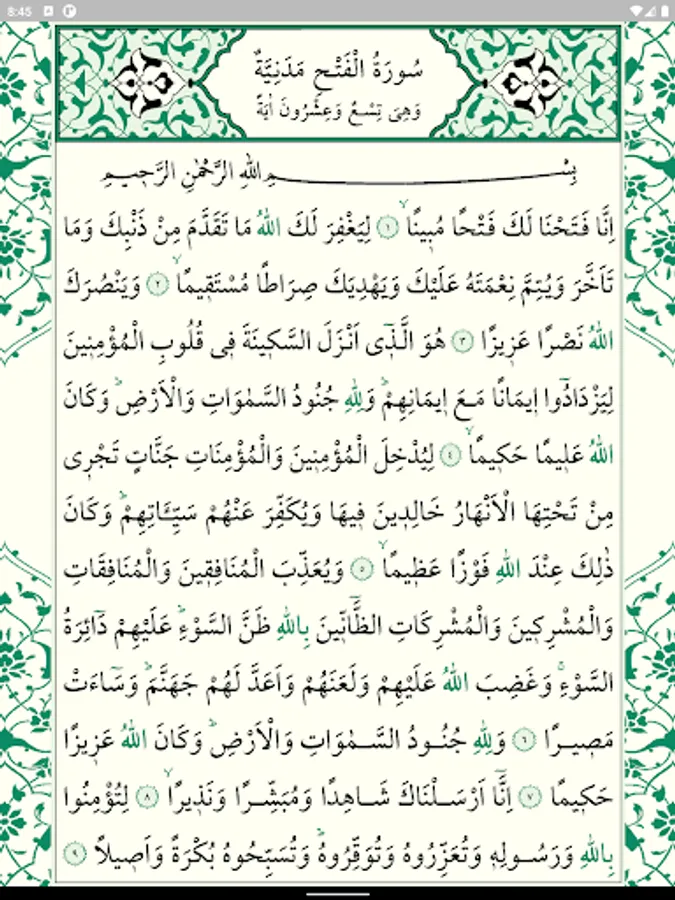 8:45
سُورَةُ الْفَتْحِ مَدَنِيَّةٌ
وَهِىَ تِسْعٌ وَعِشْرُونَ اٰيَةً
بِسْمِ اللهِ الرَّحْمٰنِ الرَّحِيمِ
اِنَّا فَتَحْنَا لَكَ فَتْحًا مُبِينًاۙ ﴿١﴾ لِيَغْفِرَ لَكَ اللهُ مَا تَقَدَّمَ مِنْ ذَنْبِكَ وَمَا
تَاَخَّرَ وَيُتِمَّ نِعْمَتَهُ عَلَيْكَ وَيَهْدِيَكَ صِرَاطًا مُسْتَقِيمًاۙ ﴿٢﴾ وَيَنْصُرَكَ
اللهُ نَصْرًا عَزِيزًا ﴿٣﴾ هُوَ الَّذِٓى اَنْزَلَ السَّكِينَةَ فِى قُلُوبِ الْمُؤْمِنِينَ
لِيَزْدَادُٓوا اِيمَانًا مَعَ اِيمَانِهِمْۜ وَلِلّٰهِ جُنُودُ السَّمٰوَاتِ وَالْاَرْضِۜ وَكَانَ
اللهُ عَلِيمًا حَكِيمًاۙ ﴿٤﴾ لِيُدْخِلَ الْمُؤْمِنِينَ وَالْمُؤْمِنَاتِ جَنَّاتٍ تَجْرِى
مِنْ تَحْتِهَا الْاَنْهَارُ خَالِدِينَ فِيهَا وَيُكَفِّرَ عَنْهُمْ سَيِّـَٔاتِهِمْۜ وَكَانَ
ذٰلِكَ عِنْدَ اللهِ فَوْزًا عَظِيمًاۙ ﴿٥﴾ وَيُعَذِّبَ الْمُنَافِقِينَ وَالْمُنَافِقَاتِ
وَالْمُشْرِكِينَ وَالْمُشْرِكَاتِ الظَّٓانِّينَ بِاللهِ ظَنَّ السَّوْءِۜ عَلَيْهِمْ دَٓائِرَةُ
السَّوْءِۚ وَغَضِبَ اللهُ عَلَيْهِمْ وَلَعَنَهُمْ وَاَعَدَّ لَهُمْ جَهَنَّمَۜ وَسَٓاءَتْ
مَصِيرًا ﴿٦﴾ وَلِلّٰهِ جُنُودُ السَّمٰوَاتِ وَالْاَرْضِۜ وَكَانَ اللهُ عَزِيزًا
حَكِيمًا ﴿٧﴾ اِنَّٓا اَرْسَلْنَاكَ شَاهِدًا وَمُبَشِّرًا وَنَذِيرًاۙ ﴿٨﴾ لِتُؤْمِنُوا
بِاللهِ وَرَسُولِهٖ وَتُعَزِّرُوهُ وَتُوَقِّرُوهُۜ وَتُسَبِّحُوهُ بُكْرَةً وَاَصِيلًا ﴿٩﴾